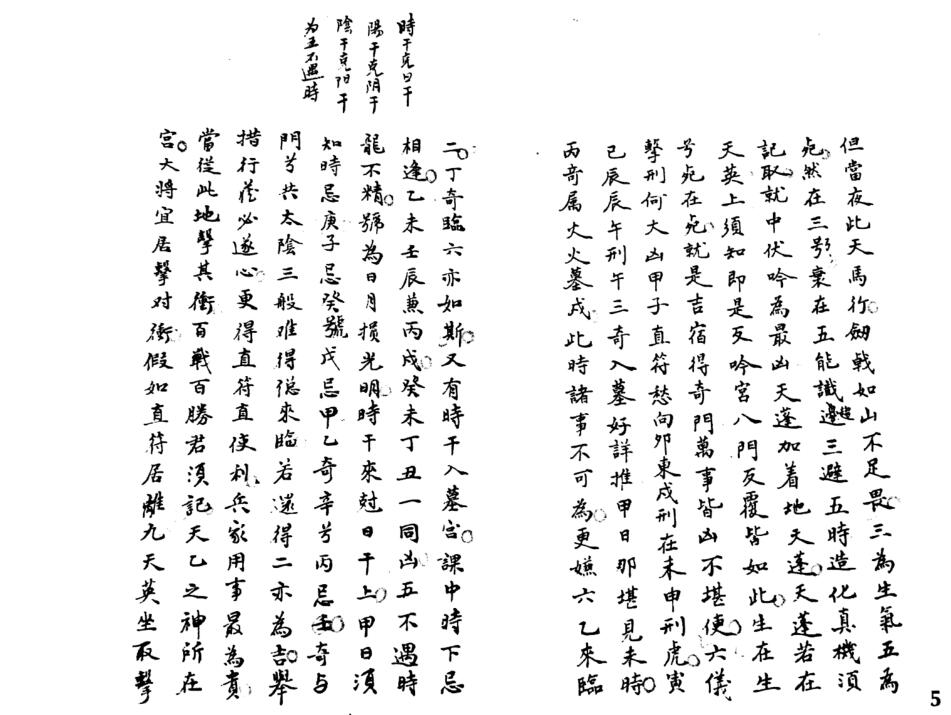 但當夜此天馬行劒戟如山不足畏三為生氣五為
死然在三兮衰在五能識趨三避五時造化真機須
記取就中伏吟為最凶天蓬加着地天蓬天蓬若在
天英上須知即是反吟宮八門反覆皆如此生在生
兮死在死就是吉宿得奇門萬事皆凶不堪使六儀
擊刑何大凶甲子直符愁向卯東戌刑在未申刑虎寅
己辰辰午刑午三奇入墓好詳推甲日那堪見未時
丙奇属火火墓戌此時諸事不可為更嫌六乙來臨
時干克日干
陽干克阴干
陰干克阳干
为五不遇時
二丁奇臨六亦如斯又有時干入墓宮課中時下忌
相逢乙未壬辰兼丙戌癸未丁丑一同凶五不遇時
龍不精號為日月損光明時干來尅日干上甲日須
知時忌庚子忌癸號戊忌甲乙奇辛兮丙忌壬奇与
門兮共太陰三般难得總來臨若還得二亦為吉舉
措行藏必遂心更得直符直使利兵家用事最為貴
當從此地擊其衝百戰百勝君須記天乙之神所在
宮大將宜居擊对衝假如直符居離九天英坐取擊
5